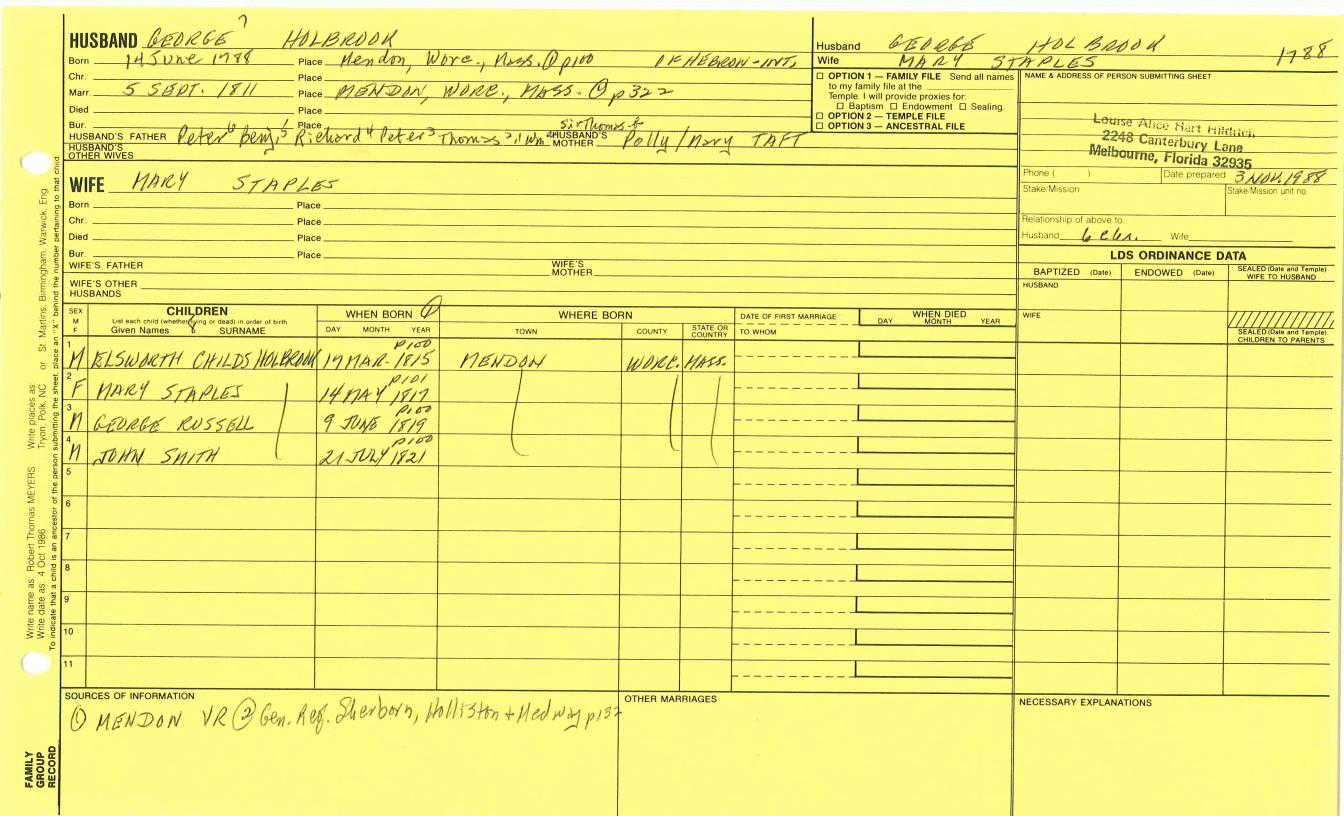 HUSBAND GEORGE 7 HOLBROOK
Born 14 June 1788 Place Mendon, Worc., Mass. ① p100
Chr. Place
Marr 5 SEPT. 1811 Place MENDON, WORC., MASS. ① p322
Died Place
Bur. Place
HUSBAND'S FATHER Peter 6 Benj. 5 Richard 4 Peter 3 Thomas 2, 1 Wm Sir Thomas HUSBAND'S MOTHER Polly/Mary TAFT
HUSBAND'S OTHER WIVES
WIFE MARY STAPLES
Born Place
Chr. Place
Died Place
Bur. Place
WIFE'S FATHER WIFE'S MOTHER
WIFE'S OTHER HUSBANDS
Husband GEORGE HOLBROOK 1788
Wife MARY STAPLES
☐ OPTION 1 — FAMILY FILE Send all names
to my family file at the
Temple. I will provide proxies for:
☐ Baptism ☐ Endowment ☐ Sealing.
☐ OPTION 2 — TEMPLE FILE
☐ OPTION 3 — ANCESTRAL FILE
NAME & ADDRESS OF PERSON SUBMITTING SHEET
Louise Alice Hart Hildrich
2248 Canterbury Lane
Melbourne, Florida 32935
Phone ( ) Date prepared 3 NOV. 1988
Stake/Mission Stake/Mission unit no.
Relationship of above to
Husband 6 c6r. Wife
LDS ORDINANCE DATA
BAPTIZED (Date) ENDOWED (Date) SEALED (Date and Temple) WIFE TO HUSBAND
HUSBAND
WIFE
SEALED (Date and Temple) CHILDREN TO PARENTS
SEX M F
CHILDREN
List each child (whether living or dead) in order of birth
Given Names SURNAME
WHEN BORN ①
DAY MONTH YEAR
WHERE BORN
TOWN COUNTY STATE OR COUNTRY
DATE OF FIRST MARRIAGE
TO WHOM
WHEN DIED
DAY MONTH YEAR
1 M ELSWORTH CHILDS HOLBROOK 19 MAR. 1815 p100 MENDON WORC. MASS.
2 F MARY STAPLES 14 MAY 1817 p101
3 M GEORGE RUSSELL 9 JUNE 1819 p100
4 M JOHN SMITH 21 JULY 1821 p100
5
6
7
8
9
10
11
SOURCES OF INFORMATION
① MENDON VR ② Gen. Reg. Sherborn, Holliston + Medway p132
OTHER MARRIAGES
NECESSARY EXPLANATIONS
Write name as: Robert Thomas MEYERS Write places as: Tryon, Polk, NC or St. Martins, Birmingham, Warwick, Eng
Write date as: 4 Oct 1986
To indicate that a child is an ancestor of the person submitting the sheet, place an "X" behind the number pertaining to that child.
FAMILY
GROUP
RECORD